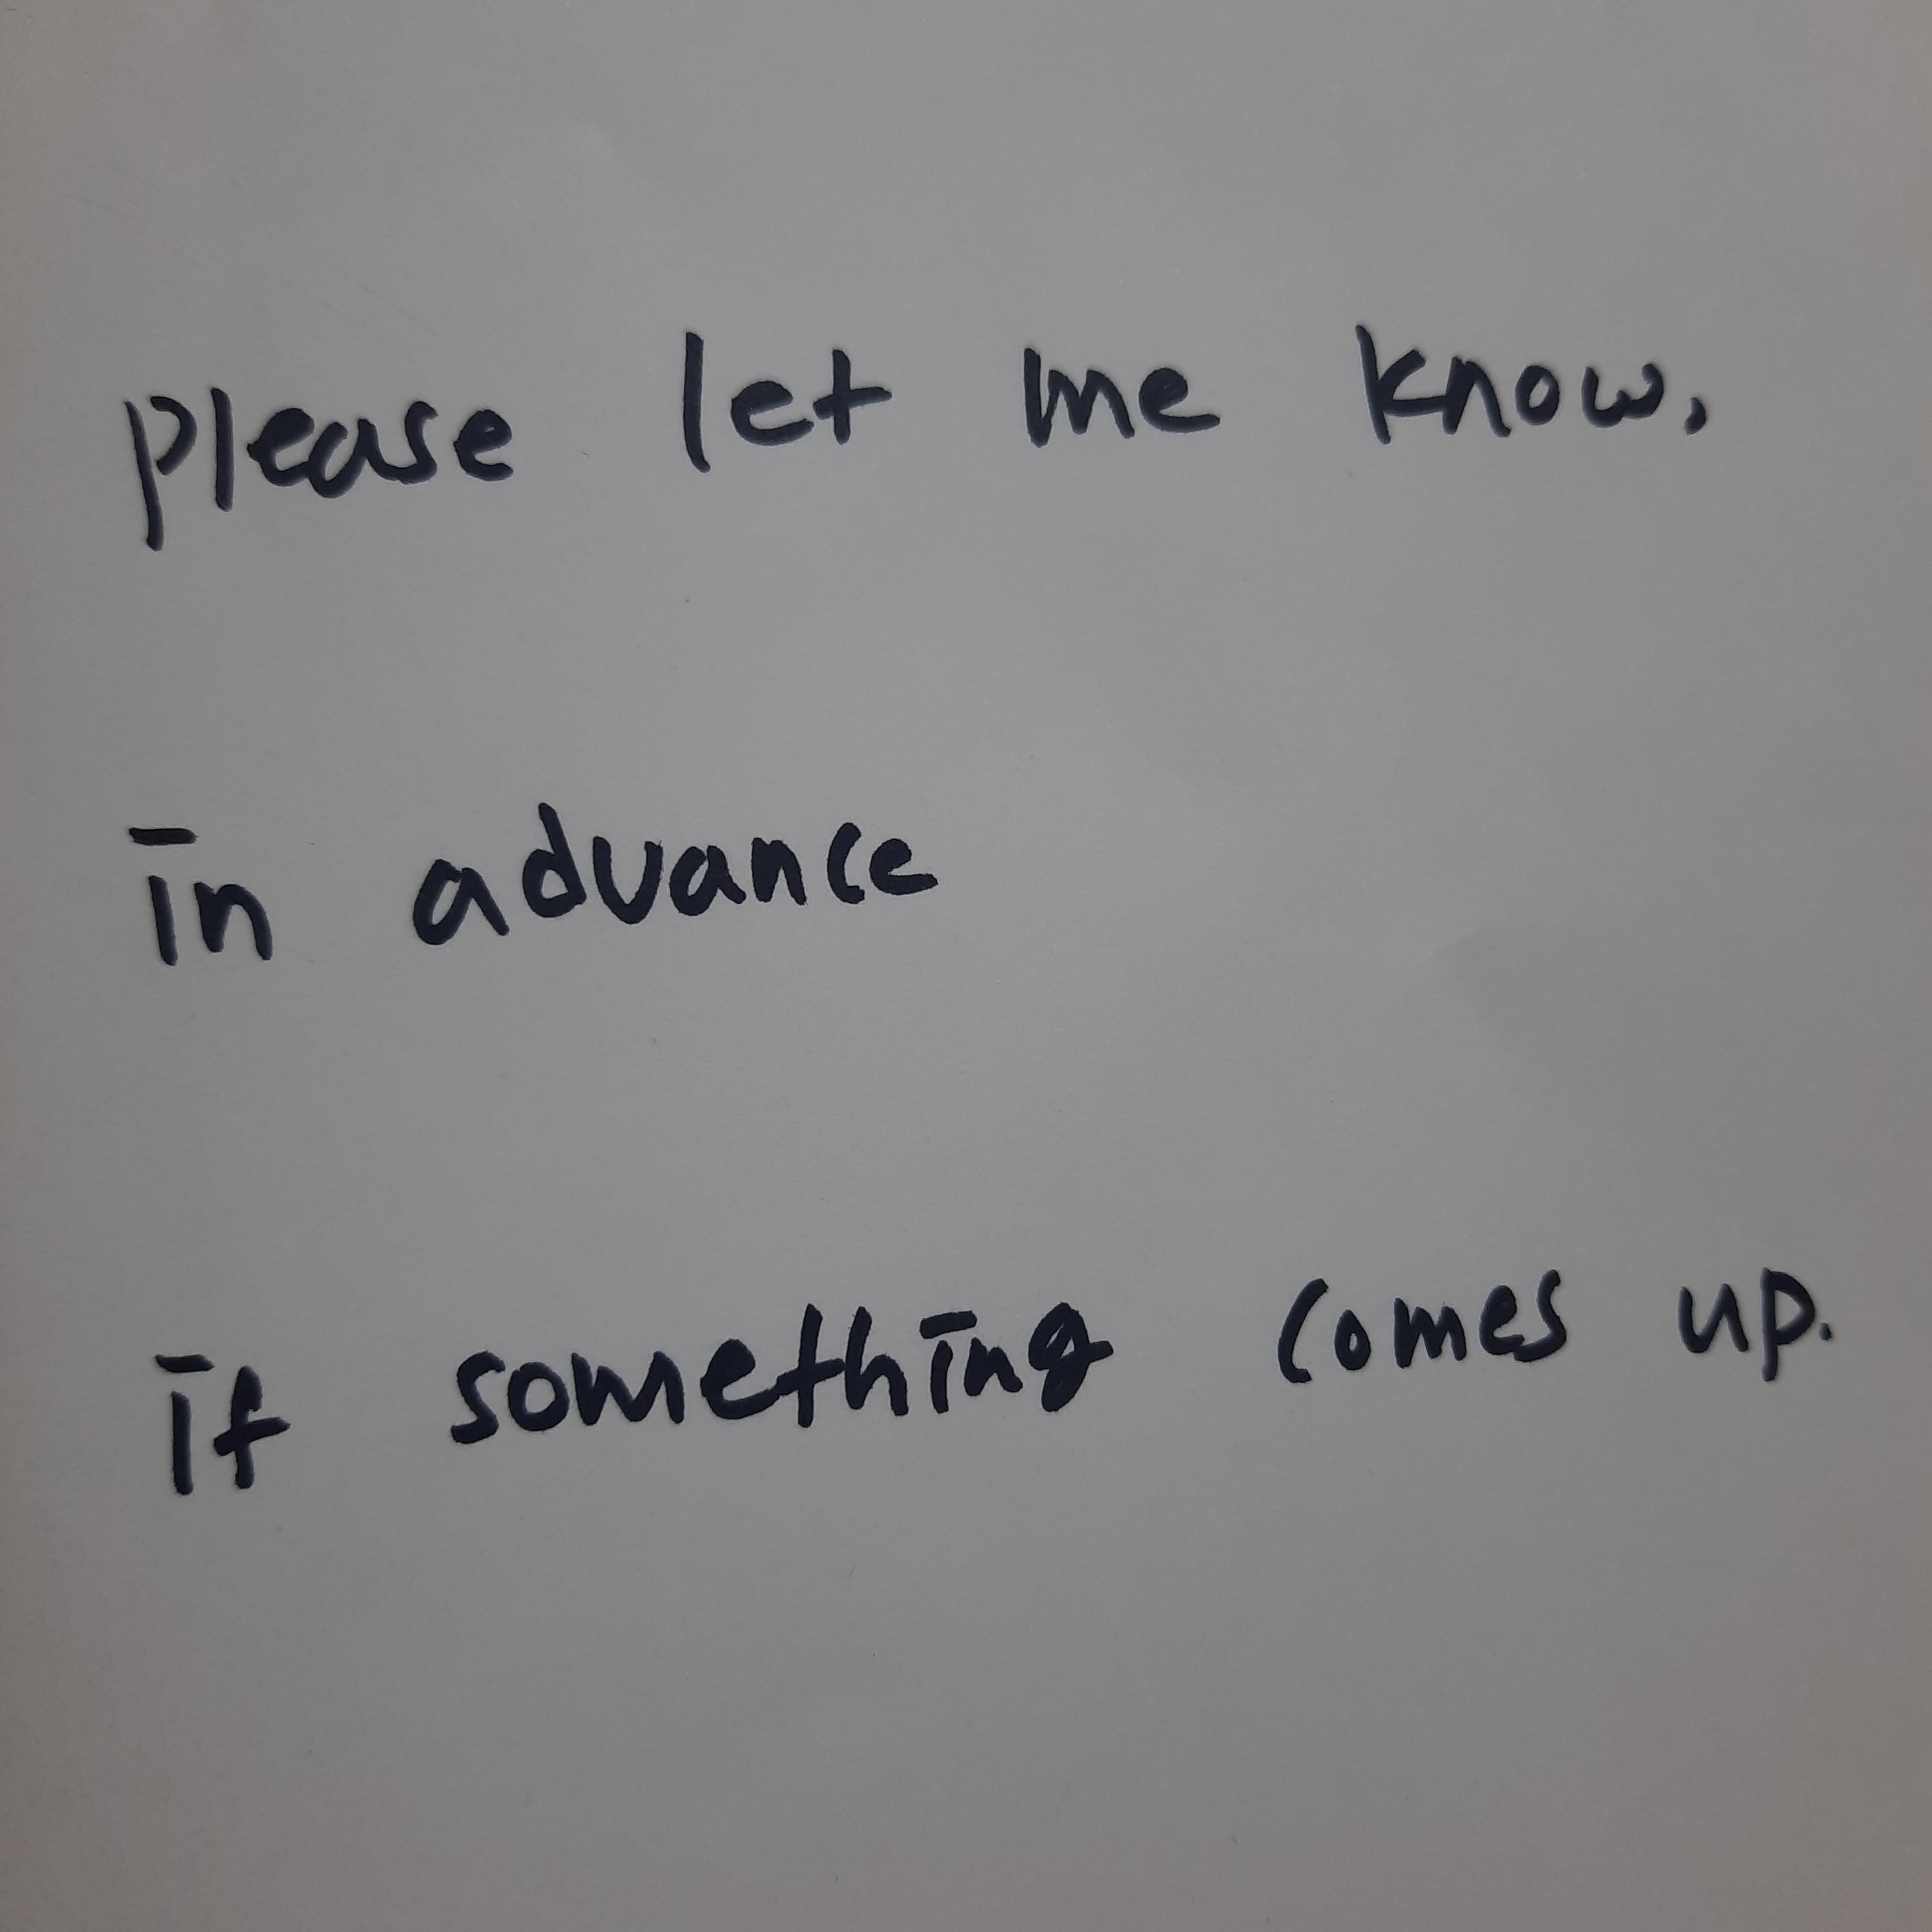 please let me know,
in advance
if something comes up.